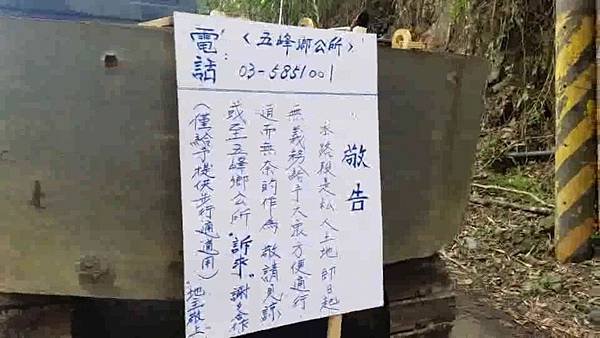 電話：〈五峰鄉公所〉
03-5851001
敬告
本路段是私人土地 即日起
無義務給予大眾方便通行
迫而無奈的作為 敬請見諒
或至五峰鄉公所 訴求 謝々合作
(僅給予提供步行通道用)
地主敬上